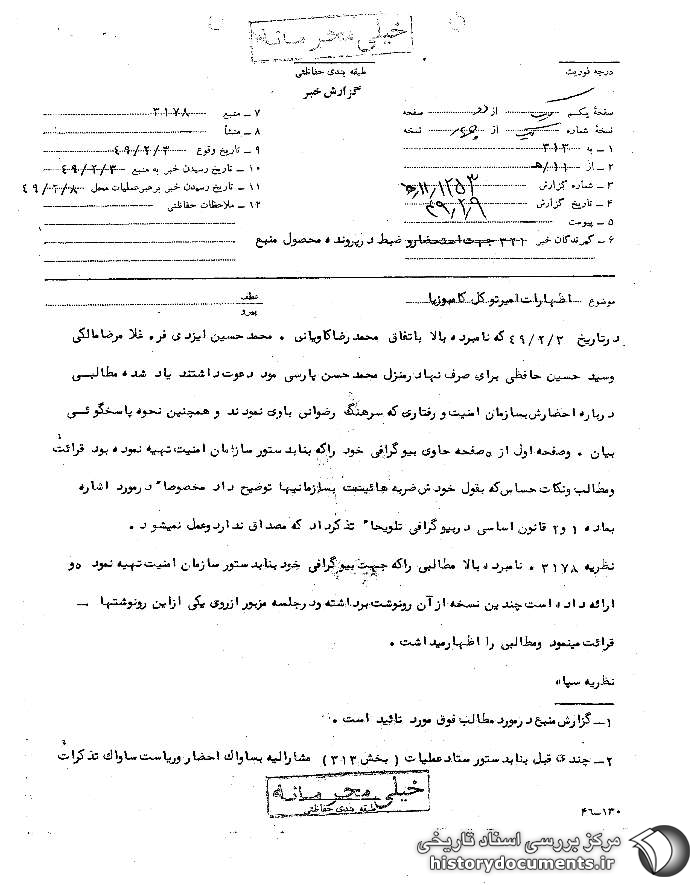 خیلی محرمانه
درجه فوریت
طبقه بندی حفاظتی
گزارش خبر
صفحهٔ یک از دو صفحه
نسخهٔ شماره یک از نسخه
۱ـ به ۳۱۲
۲ـ از ۱۱/ه
۳ـ شماره گزارش ۱۲۵۳/۱۱ه
۴ـ تاریخ گزارش ۴۹/۲/۹
۵ـ پیوست
۶ـ گیرندگان خبر ۳۲۱ جهت استحضار و ضبط در پرونده محصول منبع
۷ـ منبع ۳۱۷۸
۸ـ منشأ
۹ـ تاریخ وقوع ۴۹/۲/۳
۱۰ـ تاریخ رسیدن خبر به منبع ۴۹/۲/۳
۱۱ـ تاریخ رسیدن خبر برهبر عملیات محل ۴۹/۲/۸
۱۲ـ ملاحظات حفاظتی
موضوع اظهارات امیرتوکل کامبوزیا
عطف
پیرو
در تاریخ ۴۹/۲/۳ که نامبرده بالا باتفاق محمد رضا کاویانی ۰ محمد حسین ایزدی فر۰ غلا مرضا مالکی
وسید حسین حافظی برای صرف نهار در منزل محمد حسن پارسی مود دعوت داشتند یاد شده مطالبی
درباره احضارش بسازمان امنیت و رفتاری که سرهنگ رضوانی باوی نمودند و همچنین نحوه پاسخگوئی
بیان ۰ وصفحه اول از ۵ صفحه حاوی بیوگرافی خود راکه بنابد ستور سازمان امنیت تهیه نموده بود قرائت
ومطالب ونکات حساس که بقول خود ش ضربه هائیست بسازمانیها توضیح داد مخصوصا" درمورد اشاره
بماده ۱ و۲ قانون اساسی دربیوگرافی تلویحا" تذکرداد که مصداق ندارد وعمل نمیشود ۰
نظریه ۳۱۷۸ ۰ نامبرده بالا مطالبی راکه جهت بیوگرافی خود بنابد ستور سازمان امنیت تهیه نمود ه و
ارائه داده است چند ین نسخه از آن رونوشت برداشته ودرجلسه مزبور ازروی یکی از این رونوشتها ـ
قرائت مینمود ومطالبی را اظهار میداشت ۰
نظریه سپاه
۱ـ گزارش منبع درمورد مطالب فوق مورد تائید است ۰
۲ـ چندی قبل بنابد ستور ستاد عملیات ( بخش ۳۱۲ ) مشارالیه بساواک احضار وریاست ساواک تذکرات
خیلی محرمانه
طبقه بندی حفاظتی
۴۶ـ۱۳۰
مرکز بررسی اسناد تاریخی
historydocuments.ir